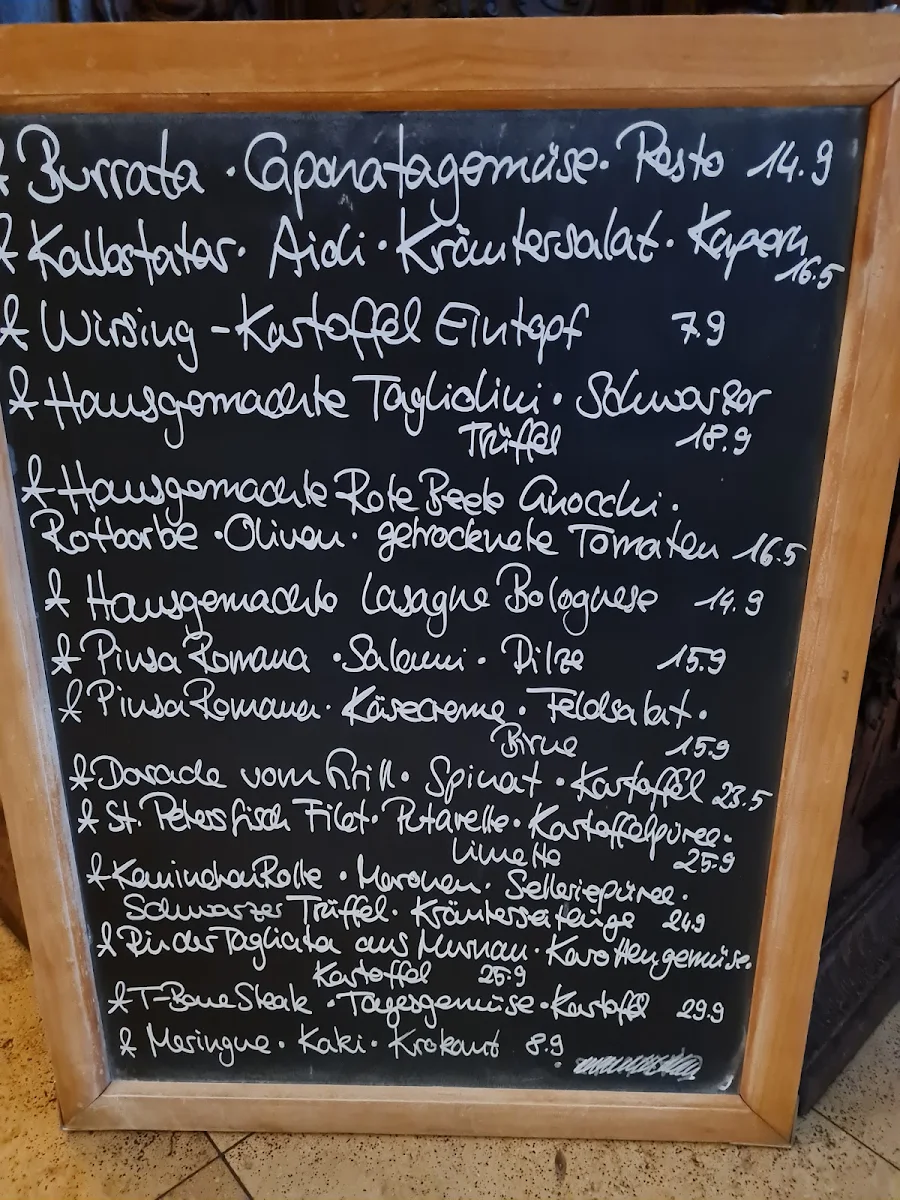 Burrata · Caponatagemüse · Pesto 14.9
Kalbstatar · Aioli · Kräutersalat · Kapern
16.5
Wirsing-Kartoffel Eintopf 7.9
Hausgemachte Tagliolini · Schwarzer
Trüffel 18.9
Hausgemachte Rote Beete Gnocchi ·
Rotbarbe · Oliven · getrocknete Tomaten 16.5
Hausgemachte Lasagne Bolognese 14.9
Pinsa Romana · Salami · Pilze 15.9
Pinsa Romana · Käsecreme · Feldsalat ·
Birne 15.9
Dorade vom Grill · Spinat · Kartoffel 23.5
St. Petersfisch Filet · Putarelle · Kartoffelpüree ·
Limette 25.9
KaninchenRolle · Maronen · Selleriepüree ·
Schwarzer Trüffel · Kräuterseitlinge 24.9
RinderTagliata aus Murnau · Karottengemüse ·
Kartoffel 25.9
T-Bone Steak · Tagesgemüse · Kartoffel 29.9
Meringue · Kaki · Krokant 8.9